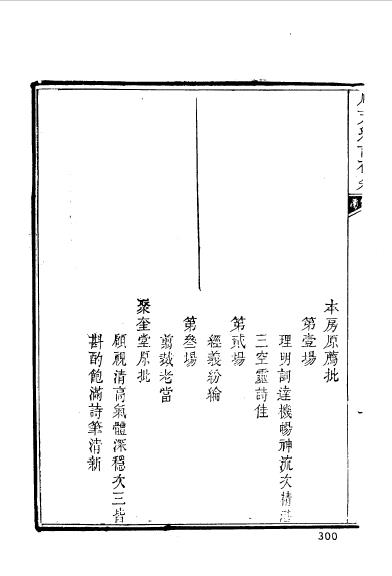 本房原薦批
第壹場
理明詞達機暢神流次精湛
三空靈詩佳
第貳場
經義紛綸
第叁場
剪裁老當
聚奎堂原批
顧視清高氣體深穩次三皆
斟酌飽滿詩筆清新
300